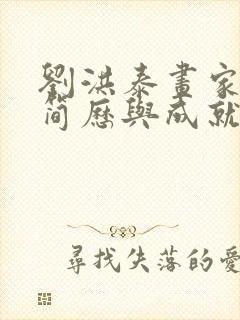 劉洪泰畫家
簡歷與成就
尋找失落的愛